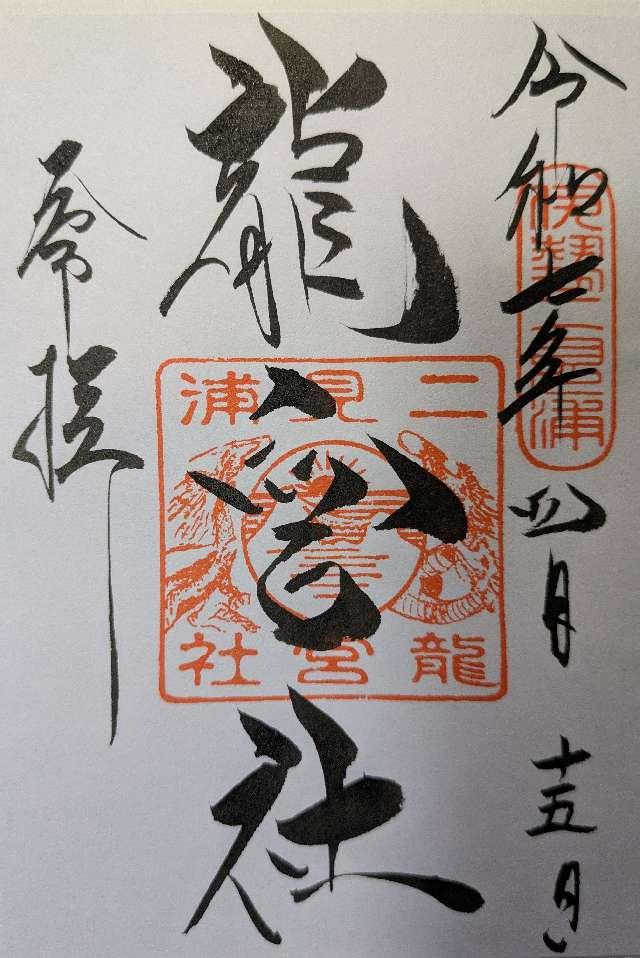 令和七年四月十五日
伊勢二見浦
龍宮社
二見浦
龍宮社
奉拝